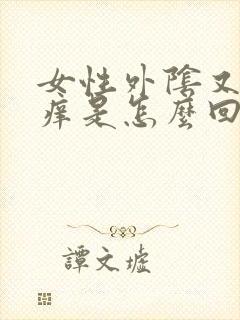 女性外陰又
痒是怎麼回
譚文墟